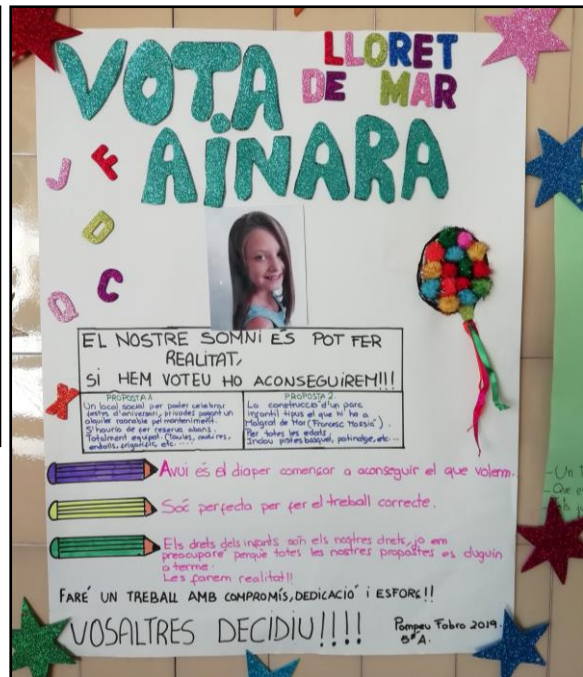 VOTA
LLORET
DE MAR
AÏNARA
J F
D
Q C
EL NOSTRE SOMNI ÉS POT FER
REALITAT,
SI HEM VOTEU HO ACONSEGUIREM!!!
PROPOSTA 1
Un local social per poder celebrar
festes d'aniversari, privades pagant un
alquiler raonable pel manteniment.
S'hauria de fer reserva abans.
Totalment equipat. (Taules, cadires,
endolls, frigorífic, etc.....
PROPOSTA 2
La construcció d'un parc
infantil tipus el que hi ha a
Malgrat de Mar (Francesc Macià).
Per totes les edats.
Inclou pistes basquet, patinatge, etc...
Avui és el dia per començar a aconseguir el que volem.
Sóc perfecta per fer el treball correcte.
Els drets dels infants són els nostres drets, jo em
preocuparé perquè totes les nostres propostes es duguin
a terme.
Les farem realitat!!
FARÉ UN TREBALL AMB COMPROMÍS, DEDICACIÓ I ESFORÇ!!
VOSALTRES DECIDIU!!!!
Pompeu Fabra 2019.
5è A.
- Un
- Que